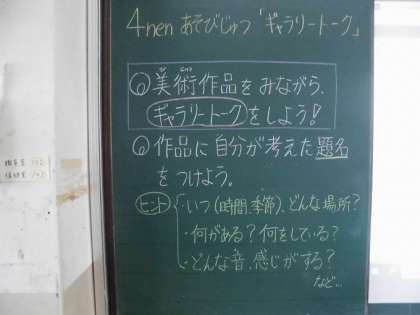 4nen あそびじゅつ「ギャラリートーク」
◎美術作品をみながら、
ギャラリートークをしよう!
◎作品に自分が考えた題名
をつけよう。
ヒント ・いつ(時間、季節)、どんな場所?
・何がある?何をしている?
・どんな音、感じがする?
など…